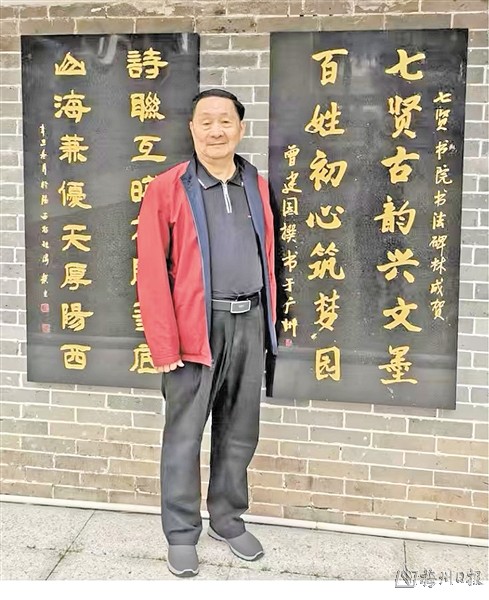 七贤书院书法碑林成贺
七贤古韵兴文墨
百姓初心筑梦园
曾建国撰书于广州
詩聯互
山海兼優天厚陽西
辛丑春月於陽西
梅州日报